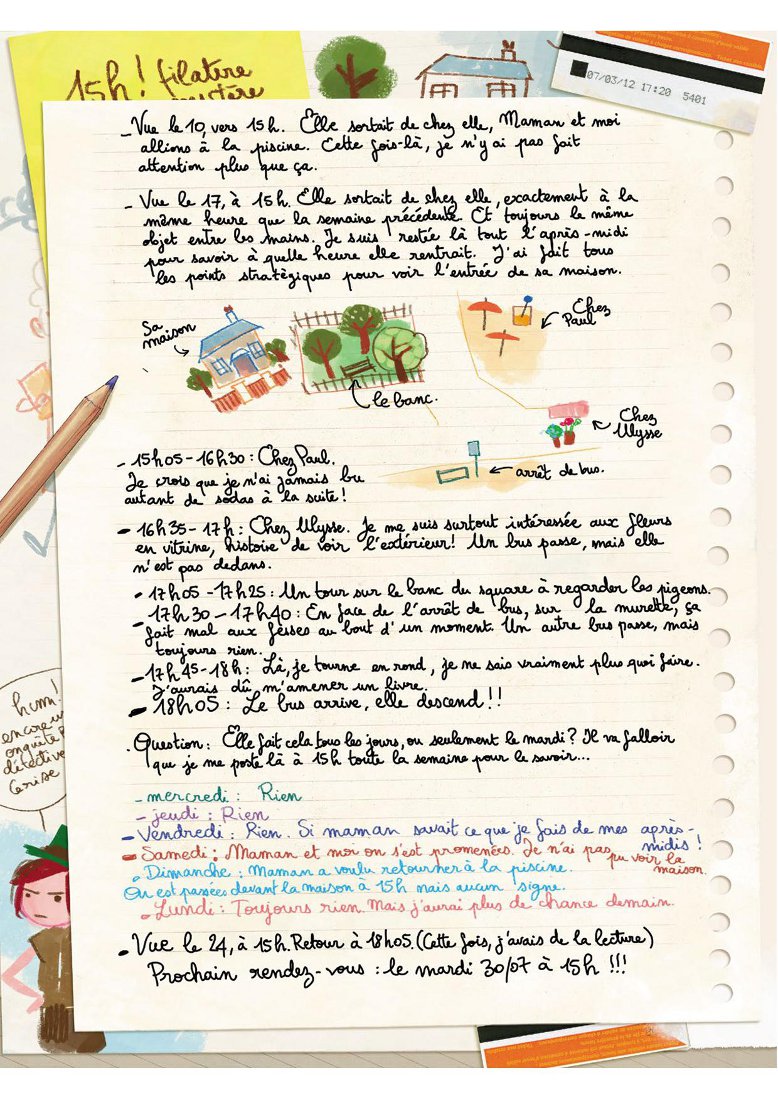 15h! filature
mystère
07/03/12 17:20 5401
_Vue le 10, vers 15h. Elle sortait de chez elle, Maman et moi
allions à la piscine. Cette fois-là, je n'y ai pas fait
attention plus que ça.
- Vue le 17, à 15h. Elle sortait de chez elle, exactement à la
même heure que la semaine précédente. Et toujours le même
objet entre les mains. Je suis restée là tout l'après-midi
pour savoir à quelle heure elle rentrait. J'ai fait tous
les points stratégiques pour voir l'entrée de sa maison.
Sa
maison
Chez
Paul
le banc.
Chez
Ulysse
arrêt de bus.
- 15h05-16h30 : Chez Paul.
Je crois que je n'ai jamais bu
autant de sodas à la suite !
- 16h35-17h : Chez Ulysse. Je me suis surtout intéressée aux fleurs
en vitrine, histoire de voir l'extérieur ! Un bus passe, mais elle
n'est pas dedans.
- 17h05-17h25 : Un tour sur le banc du square à regarder les pigeons.
- 17h30-17h40 : En face de l'arrêt de bus, sur la murette, ça
fait mal aux fesses au bout d'un moment. Un autre bus passe, mais
toujours rien.
- 17h45-18h : Là, je tourne en rond, je ne sais vraiment plus quoi faire.
J'aurais dû m'amener un livre.
- 18h05 : Le bus arrive, elle descend !!
. Question : Elle fait cela tous les jours, ou seulement le mardi ? Il va falloir
que je me poste là à 15h toute la semaine pour le savoir...
- mercredi : Rien
- jeudi : Rien
- Vendredi : Rien. Si maman savait ce que je fais de mes après-
midis !
- Samedi : Maman et moi on s'est promenées. Je n'ai pas pu voir la
maison.
. Dimanche : Maman a voulu retourner à la piscine.
On est passées devant la maison à 15h mais aucun signe.
. Lundi : Toujours rien. Mais j'aurai plus de chance demain.
. Vue le 24, à 15h. Retour à 18h05. (Cette fois, j'avais de la lecture)
Prochain rendez-vous : le mardi 30/07 à 15h !!!
hum!
encore un
enquête
détective
Cerise